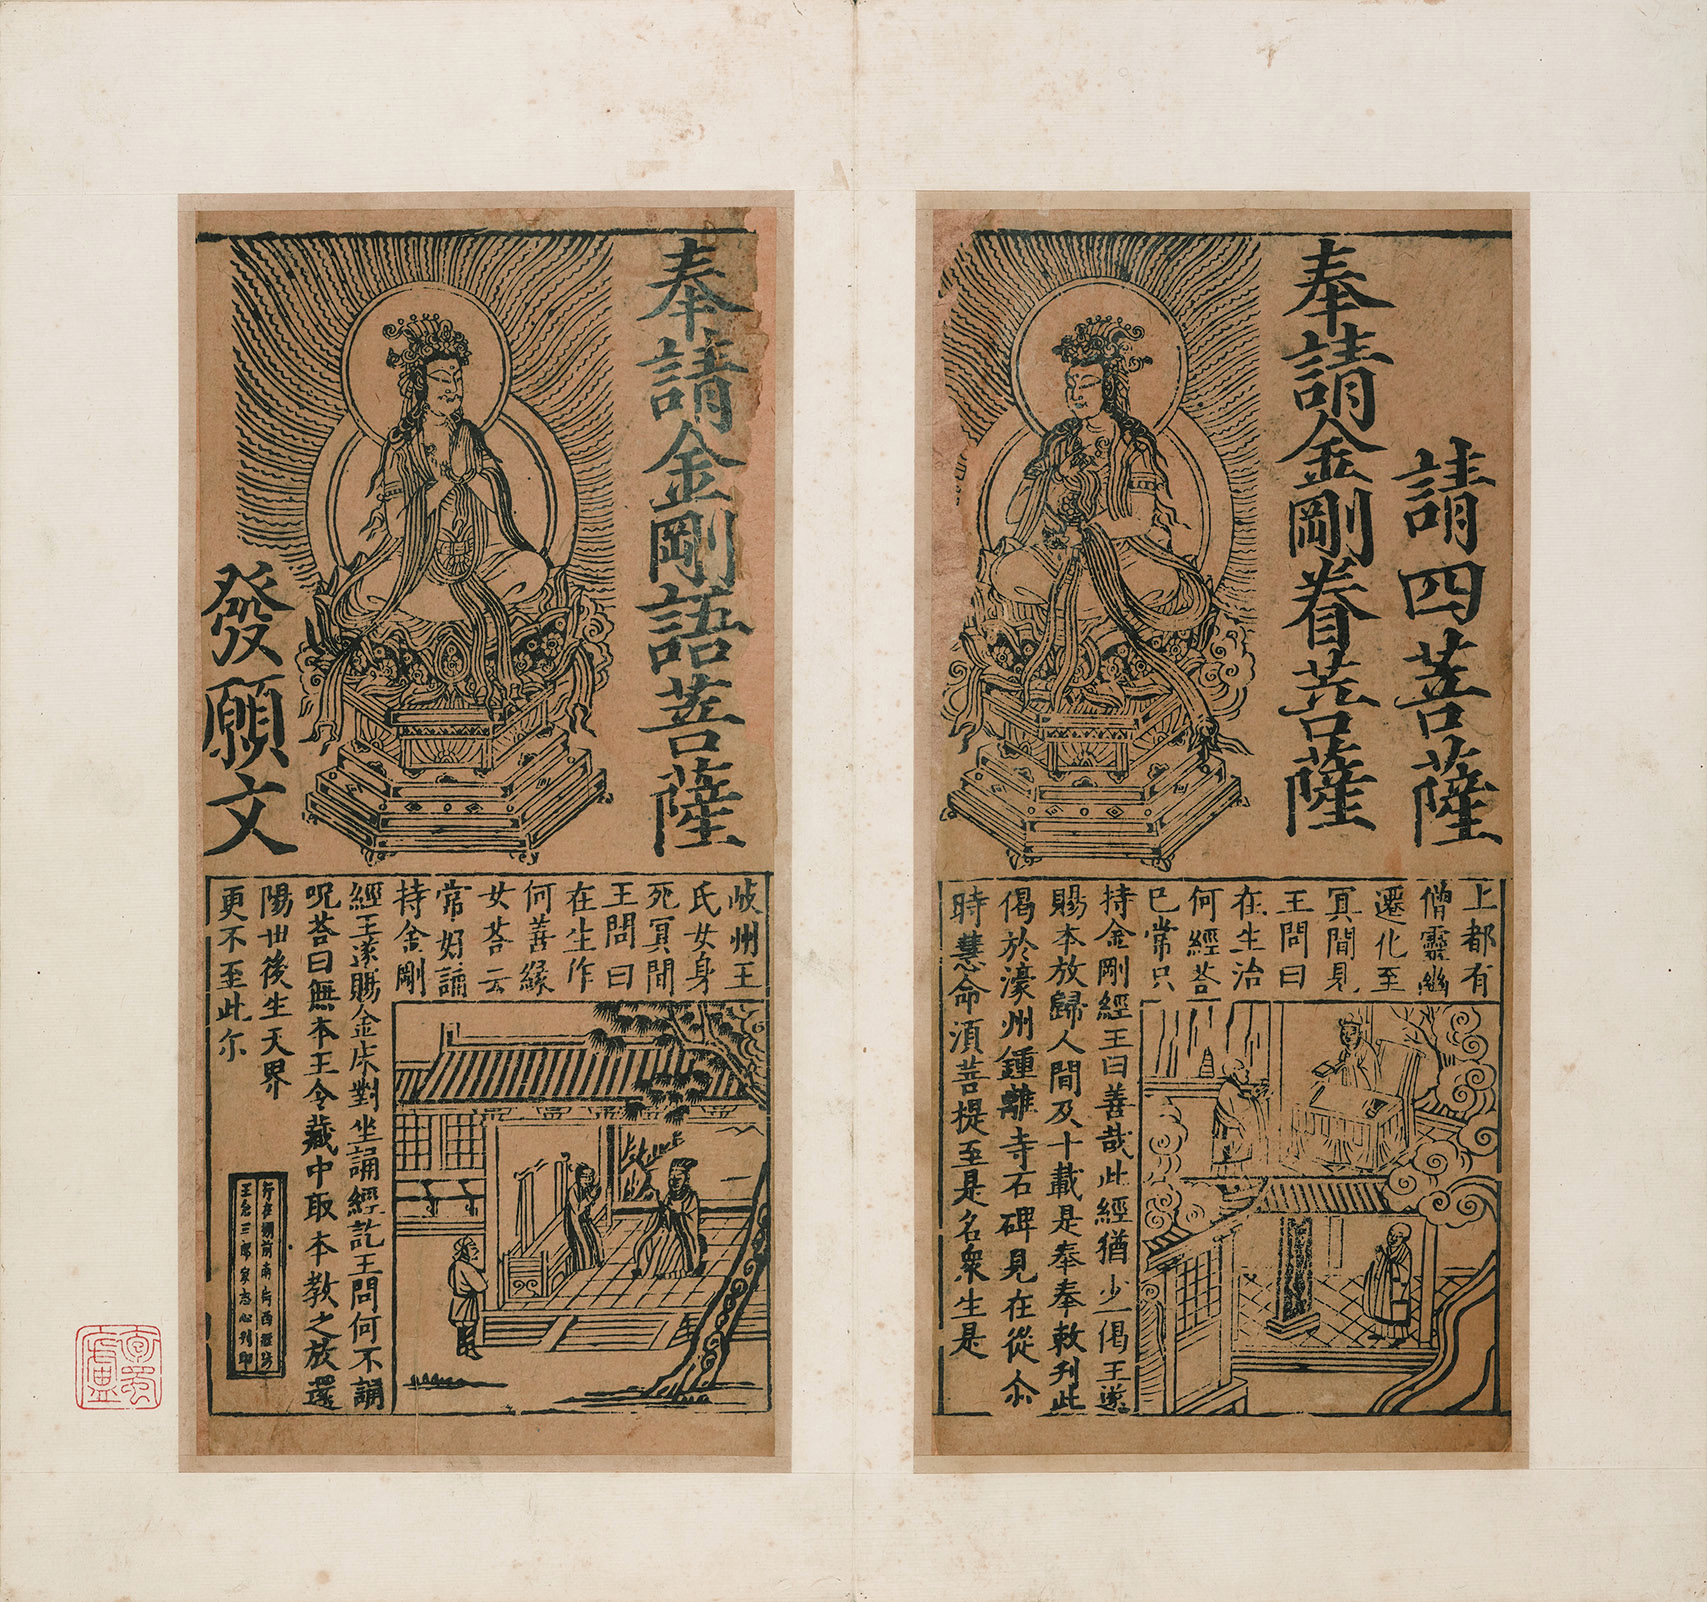 請四菩薩
奉請金剛眷菩薩
上都有
僧靈幽
遷化至
冥間見
王問曰
在生治
何經荅
巳常只
持金剛經王曰善哉此經猶少一偈王遂
賜本放歸人間及十載是奉奉敕刋此
偈於濠州鍾離寺石碑見在從尒
時慧命湏菩提至是名衆生是
奉請金剛語菩薩
發願文
岐州王
氏女身
死冥間
王問曰
在生作
何善緣
女荅云
常好誦
持金剛
經王遂賜金床對坐誦經訖王問何不誦
呪荅曰無本王令藏中取本教之放還
陽世後生天界
更不至此尒
行在棚前南街西經坊
王念三郎家志心刋印